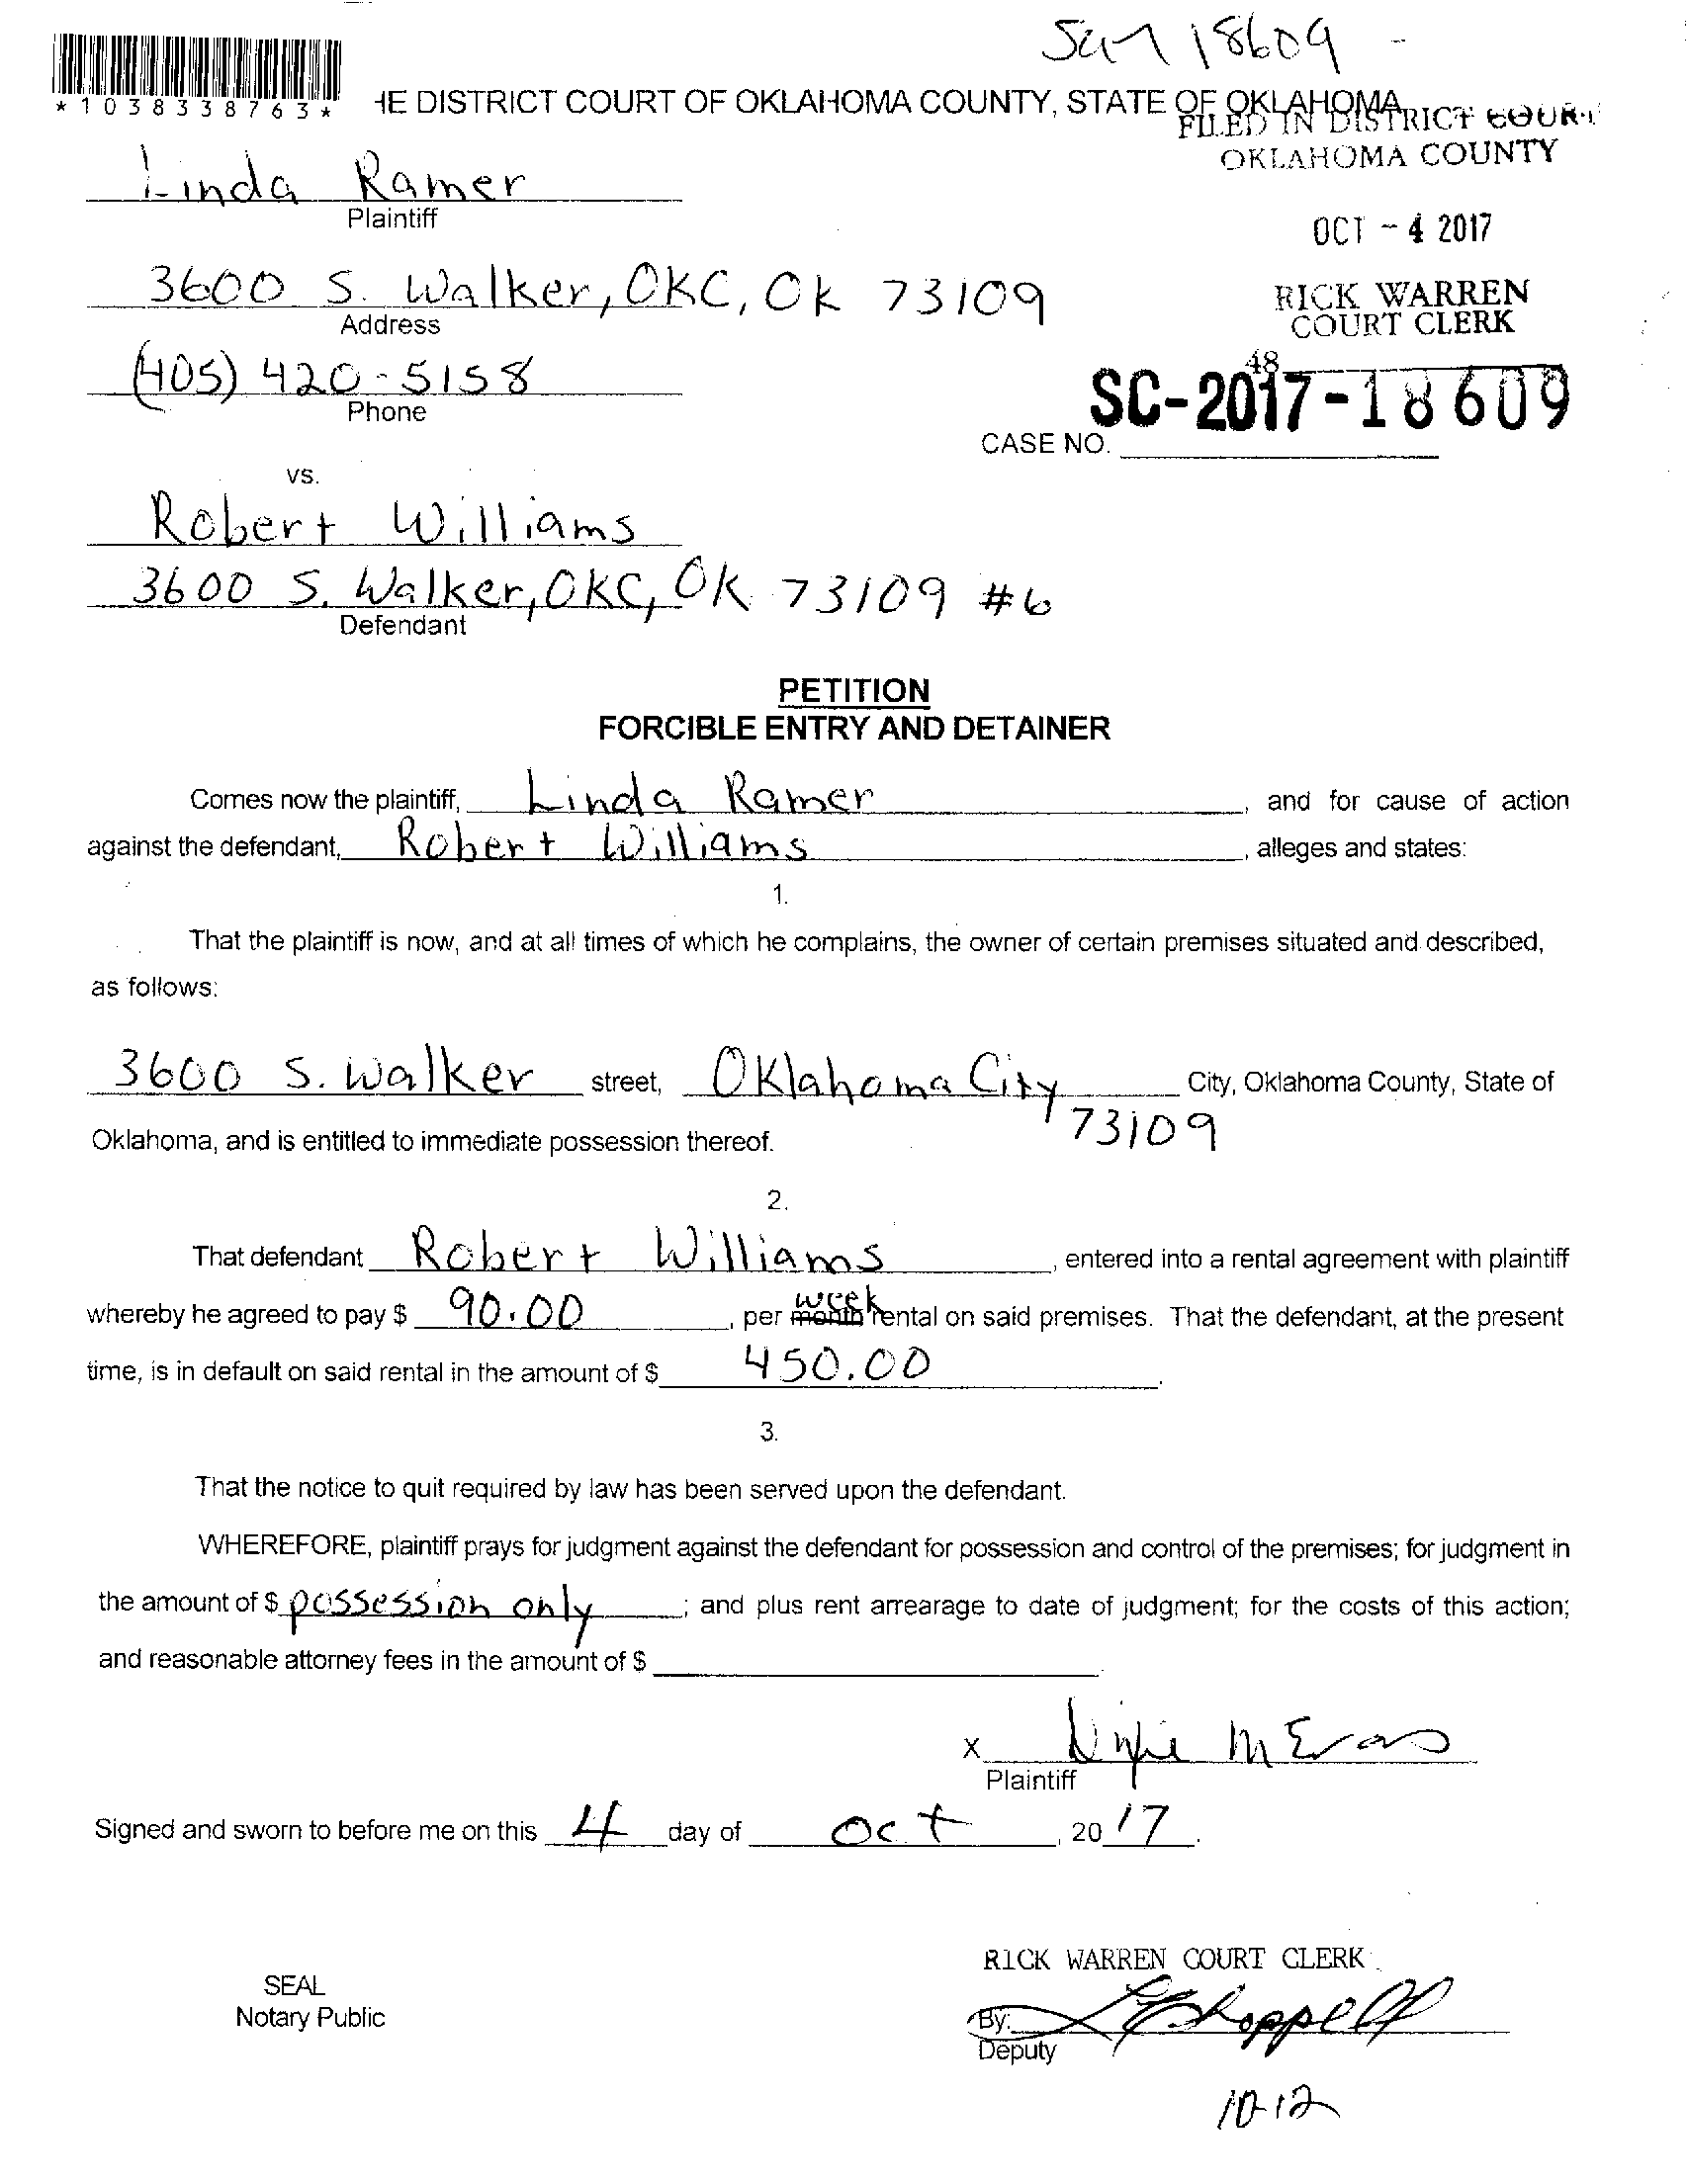 18609
*1038338763*
HE DISTRICT COURT OF OKLAHOMA COUNTY, STATE OF OKLAHOMA
FILED IN DISTRICT COURT
OKLAHOMA COUNTY
Linda Ramer
Plaintiff
OCT - 4 2017
3600 S. Walker, OKC, Ok 73109
Address
RICK WARREN
COURT CLERK
(405) 420-5158
Phone
48
SC-2017-18609
CASE NO.
vs.
Robert Williams
3600 S. Walker, OKC, OK 73109 #6
Defendant
PETITION
FORCIBLE ENTRY AND DETAINER
Comes now the plaintiff, Linda Ramer, and for cause of action
against the defendant, Robert Williams, alleges and states:
1.
That the plaintiff is now, and at all times of which he complains, the owner of certain premises situated and described,
as follows:
3600 S. Walker street, Oklahoma City City, Oklahoma County, State of
73109
Oklahoma, and is entitled to immediate possession thereof.
2.
That defendant Robert Williams, entered into a rental agreement with plaintiff
week
whereby he agreed to pay $ 90.00, per month rental on said premises. That the defendant, at the present
time, is in default on said rental in the amount of $ 450.00.
3.
That the notice to quit required by law has been served upon the defendant.
WHEREFORE, plaintiff prays for judgment against the defendant for possession and control of the premises; for judgment in
the amount of $ possession only; and plus rent arrearage to date of judgment; for the costs of this action;
and reasonable attorney fees in the amount of $
x M Evans
Plaintiff
Signed and sworn to before me on this 4 day of Oct, 20 17.
RICK WARREN COURT CLERK
SEAL
Notary Public
By:
Deputy
10-12